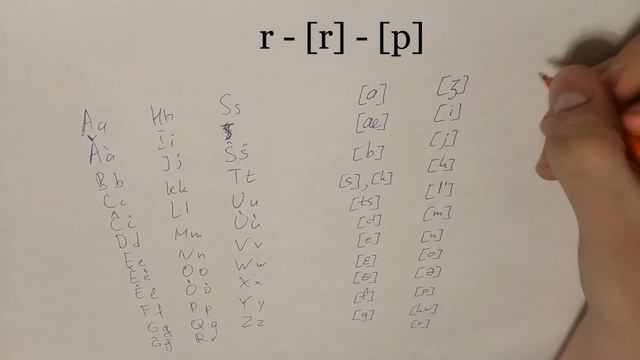 r - [r] - [р]
Aa
Àà
Bb
Cc
Ĉĉ
Dd
Ee
Èè
Êê
Ff
Gg
Ĝĝ
Hh
Ii
Jj
kk
Ll
Mm
Nn
Oo
Òò
Pp
Qq
Rr
Ss
Ŝŝ
Tt
Uu
Ùù
Vv
Ww
Xx
Yy
Zz
[a]
[ae]
[b]
[s], [k]
[ts]
[d]
[e]
[ɛ]
[ə]
[f]
[g]
[ʒ]
[i]
[j]
[k]
[l']
[m]
[n]
[o]
[ə]
[p]
[kw]
[r]